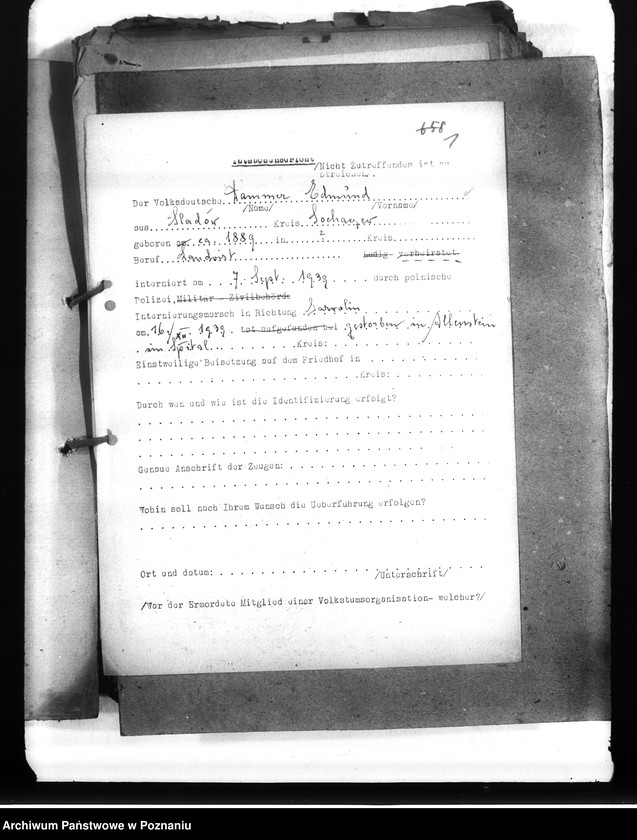 658
1
Tatsachenbericht /Nicht Zutreffendes ist zu
streichen.
Der Volksdeutsche Kammer Edmund
/Name/ /Vorname/
aus Sladów Kreis Sochaczew
geboren ca. 1889 in ? Kreis
Beruf Landwirt ledig verheiratet
interniert am 7. Sept. 1939 durch polnische
Polizei, Militär - Zivilbehörde
Internierungsmarsch in Richtung Garwolin
am 16./XII. 1939. tot aufgefunden bei gestorben in Allenstein
im Spital Kreis:
Einstweilige Beisetzung auf dem Friedhof in
Kreis:
Durch wen und wie ist die Identifizierung erfolgt?
Genaue Anschrift der Zeugen:
Wohin soll nach Ihrem Wunsch die Ueberführung erfolgen?
Ort und datum:
/Unterschrift/
/War der Ermordete Mitglied einer Volkstumsorganisation- welcher?/
Archiwum Państwowe w Poznaniu